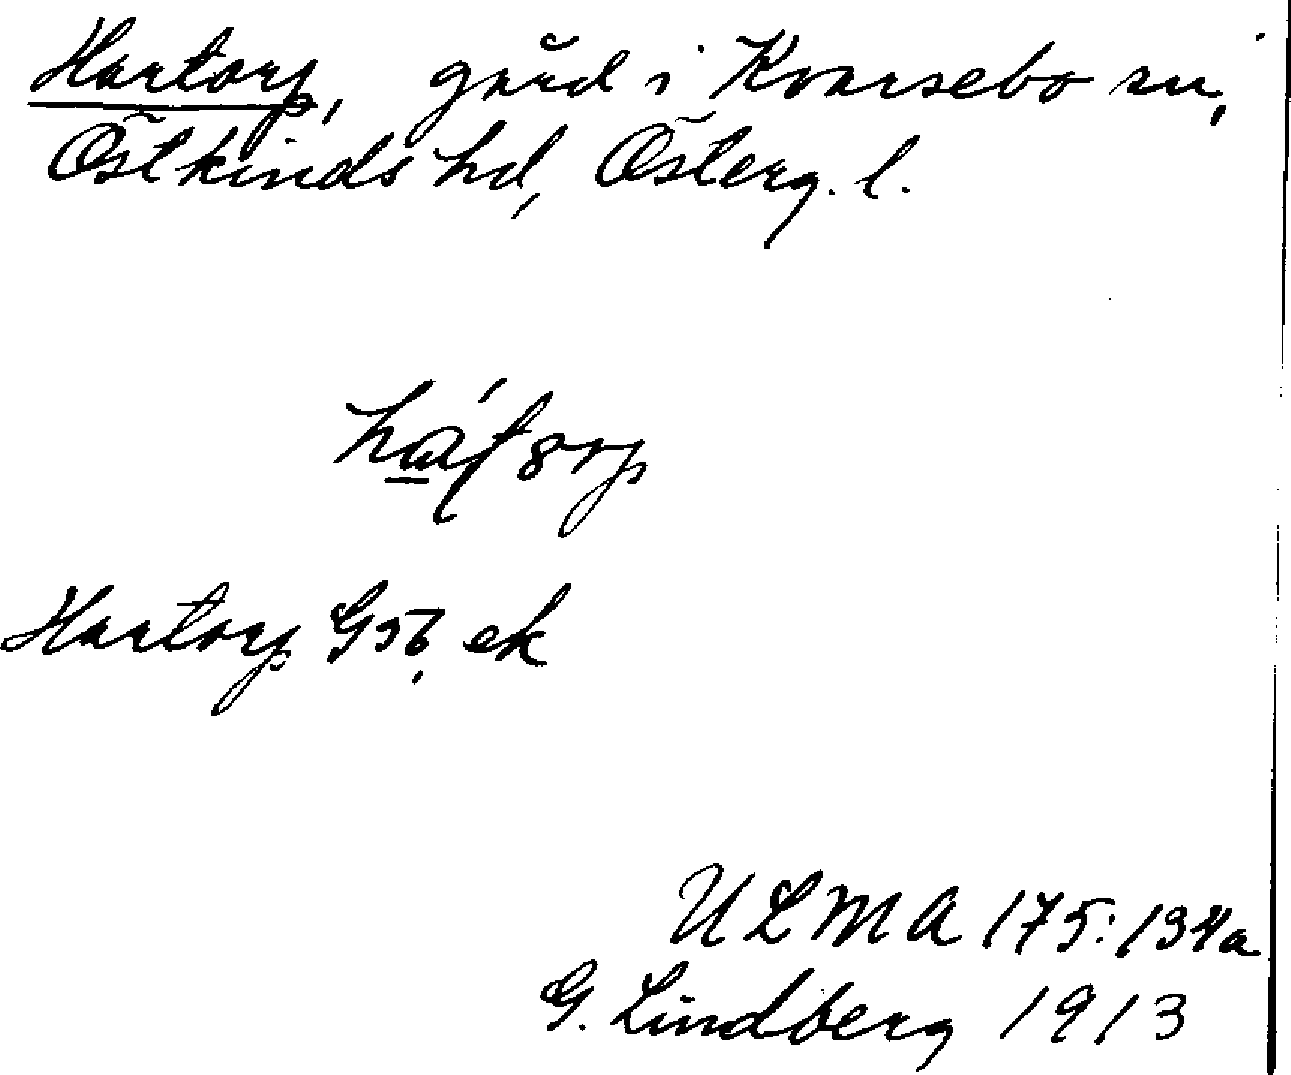 Hartorp, gård i Kvarsebo sn,
Östkinds hd, Österg. l.
Hartorp G5b, ek
ULMA 175:134a
G. Lindberg 1913